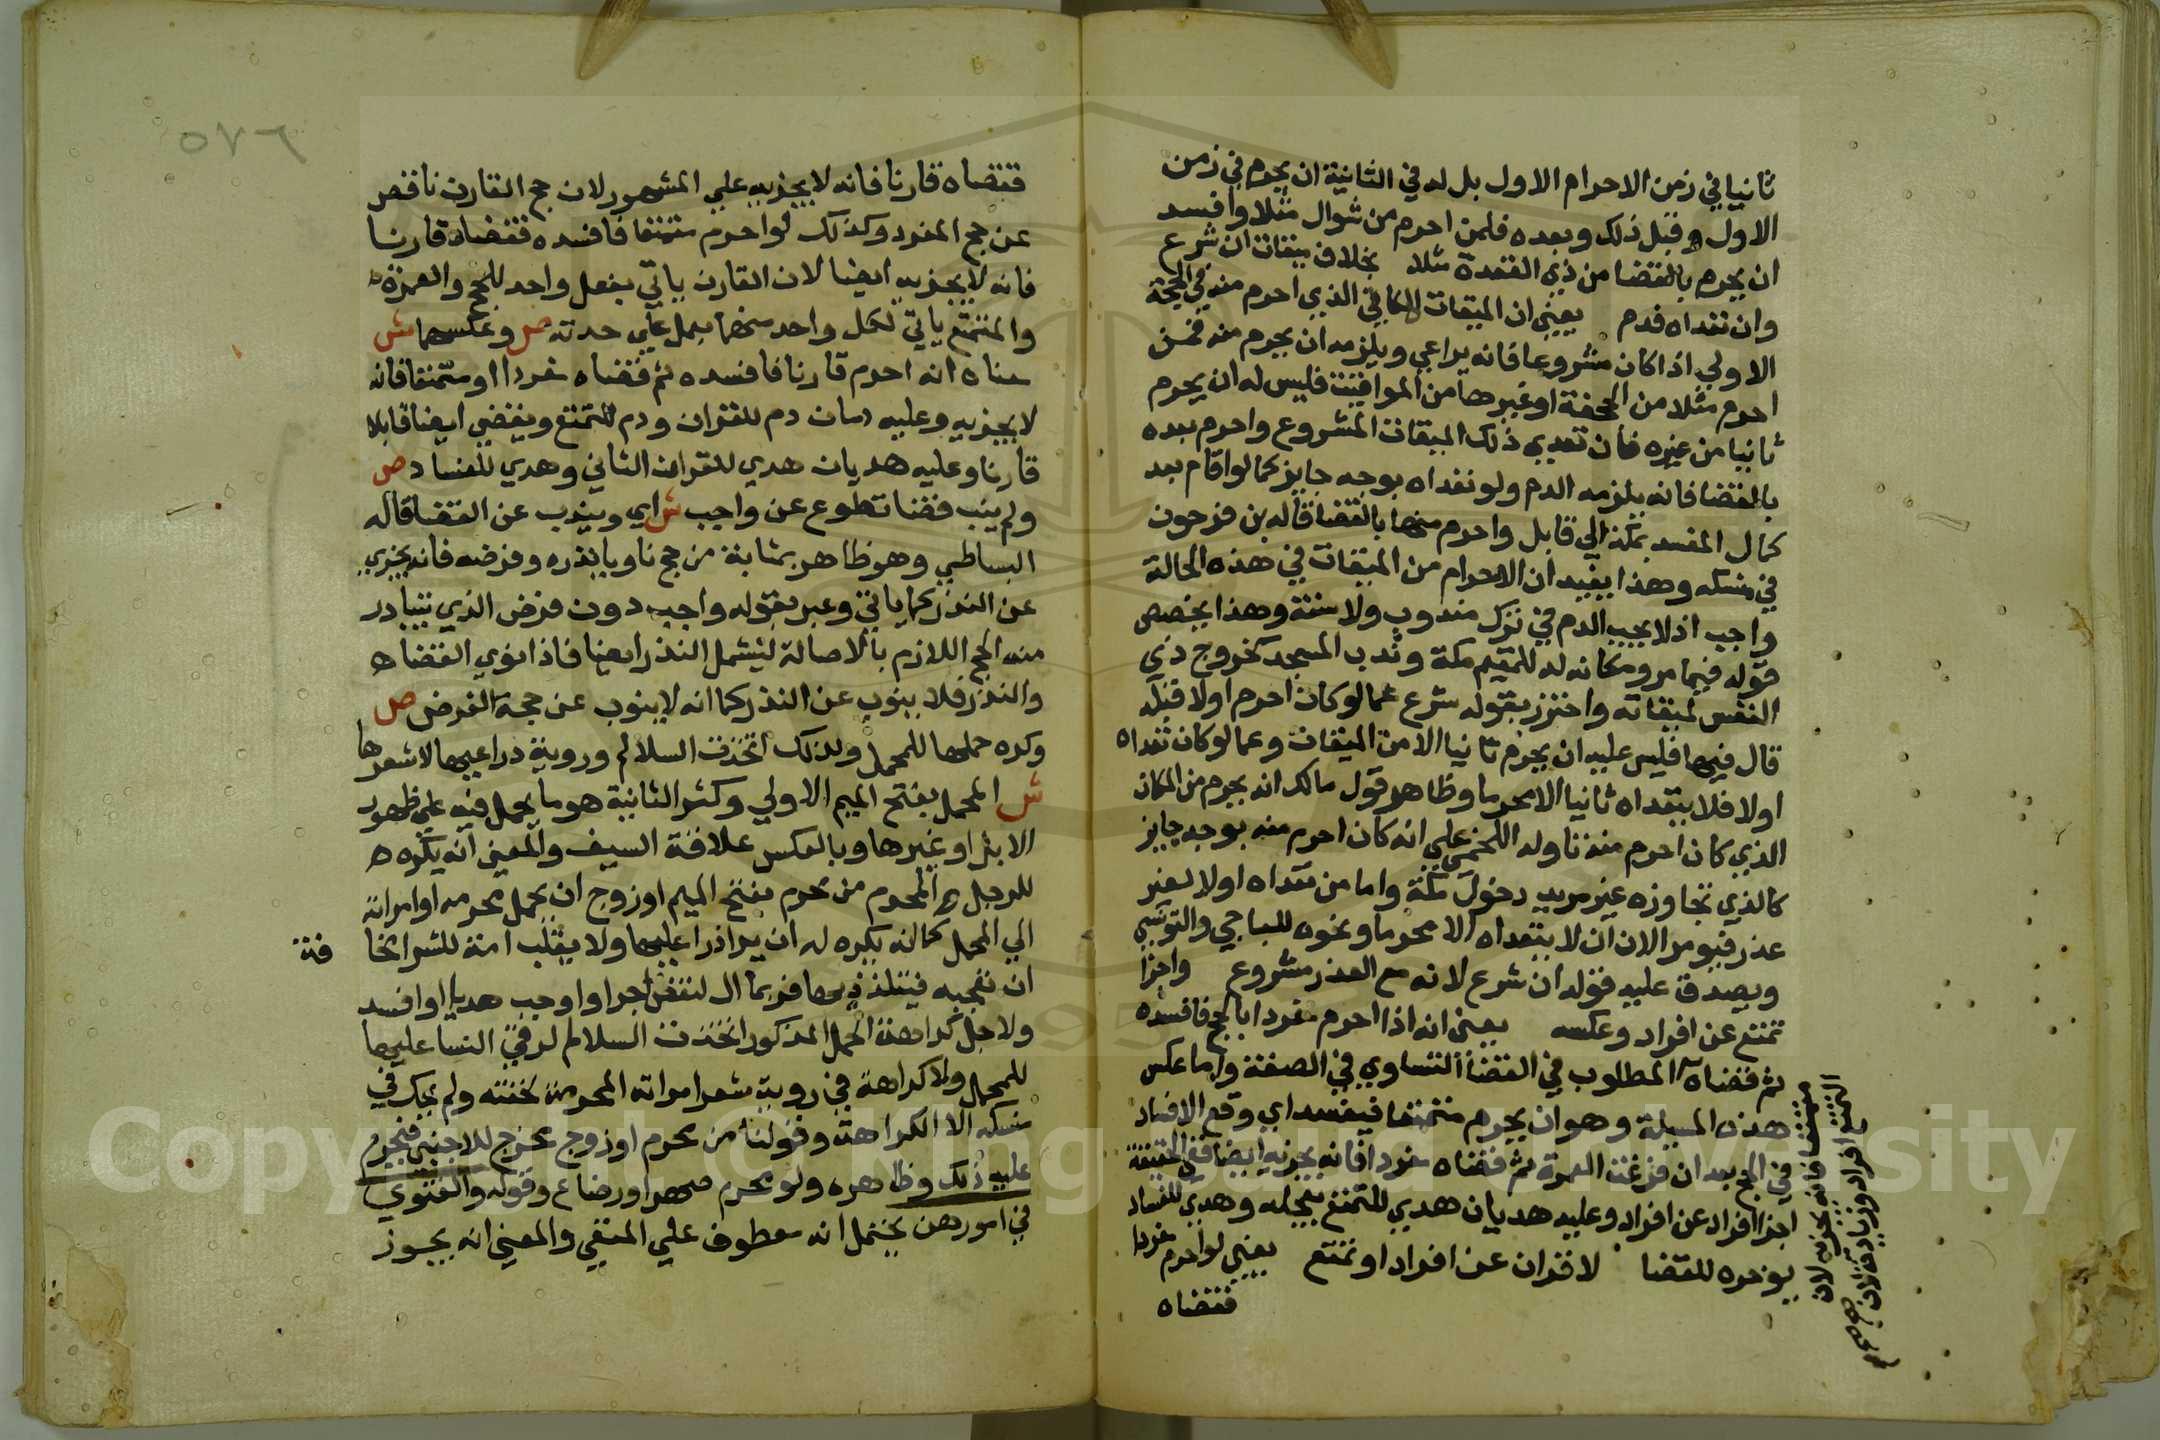 ثانيا في زمن الاحرام الاول بل له في الثانية ان يحرم في زمن
الاول وقبل ذلك وبعده فلمن احرم من شوال مثلا وافسد
ان يحرم بالقضا من ذي القعدة مثلا بخلاف ميقات ان شرع
وان تعداه فدم يعني ان الميقات المكاني الذي احرم منه في الحجة
الاولي اذا كان مشروعا فانه يراعي ويلزمه ان يحرم منه فمن
احرم مثلا من الجحفة او غيرها من المواقيت فليس له ان يحرم
ثانيا من غيره فان تعدي ذلك الميقات المشروع واحرم بعده
بالقضا فانه يلزمه الدم ولو تعداه بوجه جايز كما لو اقام بعد
كمال المفسد بمكة الي قابل واحرم منها بالقضا قاله بن فرحون
في منسكه وهذا يفيد ان الاحرام من الميقات في هذه الحالة
واجب اذ لا يجب الدم في ترك مندوب ولا سنة وهذا يخصص
قوله فيما مر ومكانه له للمقيم مكة وندب المسجد كخروج ذي
النفس لميقاته واحترز بقوله شرع عما لو كان احرم اولا قبله
قال فيها فليس عليه ان يحرم ثانيا الا من الميقات وعما لو كان تعداه
اولا فلا يتعداه ثانيا الا محرما وظاهر قول مالك انه يحرم من المكان
الذي كان احرم منه تاوله اللخمي علي انه كان احرم منه بوجه جايز
كالذي تجاوزه غير مريد دخول مكة واما من تعداه اولا لغير
عذر فيومر الان ان لا يتعداه الا محرما ونحوه للباجي والتونسي
ويصدق عليه قوله ان شرع لانه مع العذر مشروع واجزا
تمتع عن افراد وعكسه يعني انه اذا احرم مفردا بالحج فافسده
ثم قضاه المطلوب في القضا التساوي في الصفة واما عكس
هذه المسيلة وهو ان يحرم متمتعا فيفسد اي وقع الافساد
في الحج بعد ان فرغت العمرة ثم قضاه مفردا فانه يجزيه ايضا ففي الحقيقة
اجزا افراد عن افراد وعليه هديان هدي للتمتع يعجله وهدي للفساد
يوخره للقضا لا قران عن افراد او تمتع يعني لو احرم مفردا
فقضاه
متمتعا فانه يجزيه لان
التمتع افراد وزيادة لان
فقضاه قارنا فانه لا يجزيه علي المشهور لان حج القارن ناقص
عن حج المفرد وكذلك لو احرم متمتعا فافسده فقضاه قارنا
فانه لا يجزيه ايضا لان القارن ياتي بفعل واحد للحج والعمرة
والمتمتع ياتي لكل واحد منهما بعمل علي حدته ص وعكسهما ش
معناه انه احرم قارنا فافسده ثم قضاه مفردا او متمتعا فانه
لا يجزيه وعليه دمان دم للقران ودم للتمتع ويقضي ايضا قابلا
قارنا وعليه هديان هدي للقران الثاني وهدي للفساد ص
ولم ينب قضا تطوع عن واجب ش اي وينوب عن القضا قاله
البساطي وهو ظاهر بمثابة من حج ناويا نذره وفرضه فانه يجزي
عن النذر كما ياتي وعبر بقوله واجب دون فرض الذي يتبادر
منه الحج اللازم بالاصالة ليشمل النذر ايضا فاذا نوي القضا
والنذر فلا ينوب عن النذر كما انه لا ينوب عن حجة الفرض ص
وكره حملها للمحمل ولذلك اتخذت السلالم وروية ذراعيها لا شعرها
ش المحمل بفتح الميم الاولي وكسر الثانية هو ما يحمل فيه علي ظهور
الابل او غيرها وبالعكس علاقة السيف والمعني انه يكره
للرجل المحرم من محرم بفتح الميم او زوج ان يحمل محرمه او امراته
الي المحمل كما انه يكره له ان يري ذراعيها ولا يقلب امة للشرا مخا
فة
ان تعجبه فيتلذذ بها فربما ال لنقص اجر او اوجب هديا او افسد
ولاجل كراهة الحمل المذكور اتخذت السلالم لرقي النسا عليها
للمحمل ولا كراهة في روية شعر امراته المحرمة لخفته ولم يحك في
منسكه الا الكراهة وقولنا من محرم او زوج مخرج للاجنبي فيحرم
عليه ذلك وظاهره ولو محرم صهر او رضاع وقوله والفتوي
في امورهن يحتمل انه معطوف علي المنفي والمعني انه يجوز
٥٧٦